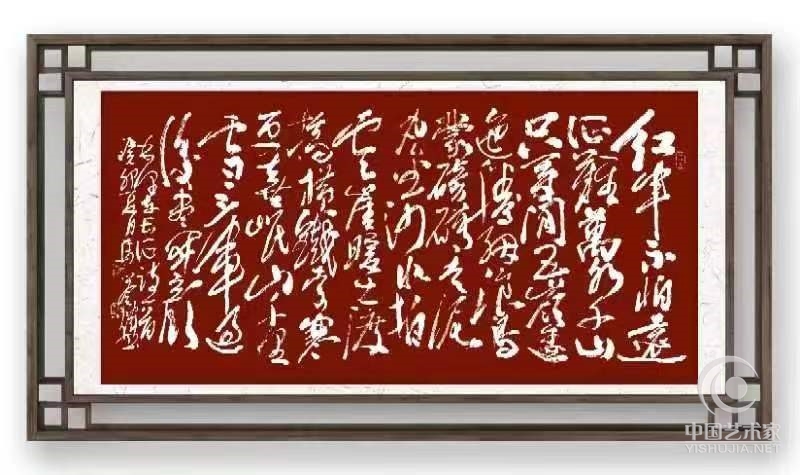 红军不怕远
征難萬水千山
只等闲五岭逶
迤腾细浪乌
蒙磅礴走泥
丸金沙水拍
雲崖暖大渡
橋横鐵索寒
更喜岷山千里
雪三军过
後尽开颜
毛泽东长征诗一首
癸卯
中国艺术家
YISHUJIA.NET